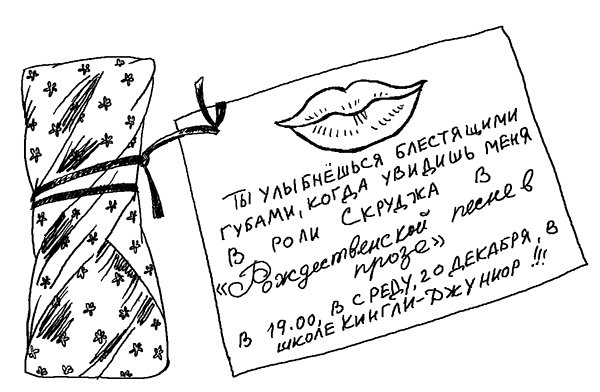 ТЫ УЛЫБНЁШЬСЯ БЛЕСТЯЩИМИ
ГУБАМИ, КОГДА УВИДИШЬ МЕНЯ
В РОЛИ СКРУДЖА В
«Рождественской песне в
прозе»
В 19.00, В СРЕДУ, 20 ДЕКАБРЯ, В
ШКОЛЕ КИНГЛИ-ДЖУНИОР!!!